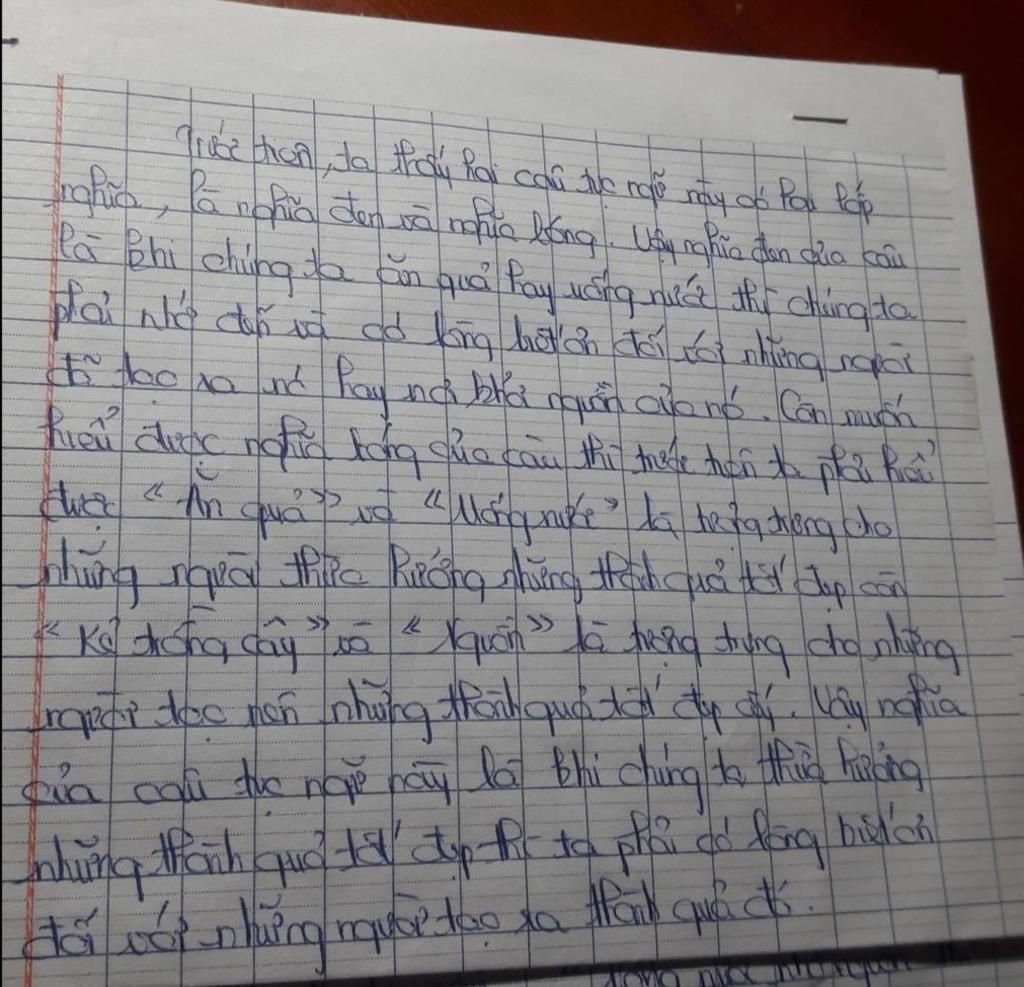 Trước hết, ta thấy hai câu tục ngữ này có hai lớp
nghĩa, là nghĩa đen và nghĩa bóng. Vậy nghĩa đen của câu
là khi chúng ta ăn quả hay uống nước thì chúng ta
phải nhớ đến và có lòng biết ơn đối với những người
đã tạo ra nó hay nơi khởi nguồn của nó. Còn muốn
hiểu được nghĩa bóng của câu thì trước hết ta phải hiểu
được "Ăn quả" và "Uống nước" là tượng trưng cho
những người thừa hưởng những thành quả tốt đẹp còn
"Kẻ trồng cây" và "Nguồn" là tượng trưng cho những
người tạo nên những thành quả tốt đẹp ấy. Vậy nghĩa
của câu tục ngữ này là khi chúng ta thừa hưởng
những thành quả tốt đẹp thì ta phải có lòng biết ơn
đối với những người tạo ra thành quả đó.